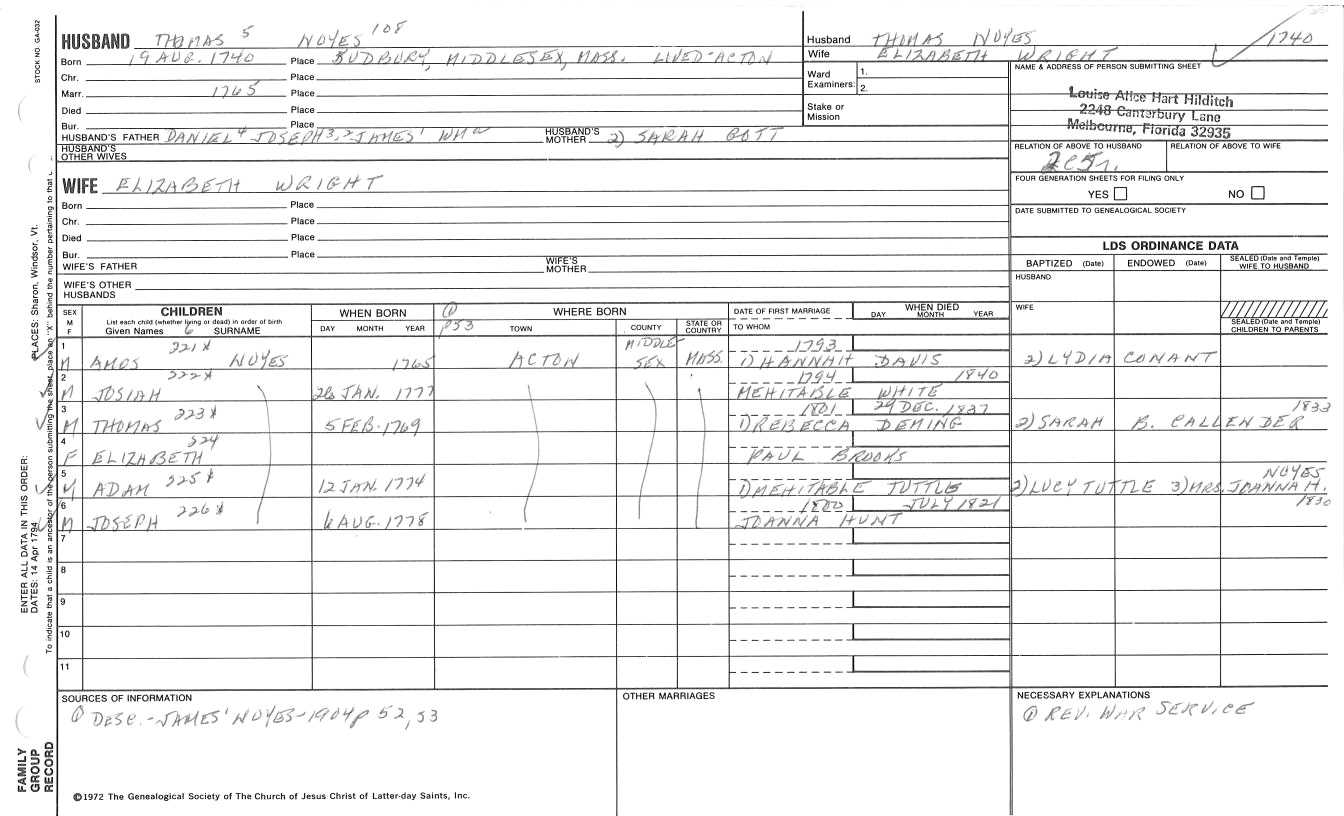 STOCK NO. GA-032
HUSBAND THOMAS 5 NOYES 108
Born 19 AUG. 1740 Place SUDBURY, MIDDLESEX, MASS. LIVED-ACTON
Chr. Place
Marr. 1765 Place
Died Place
Bur. Place
HUSBAND'S FATHER DANIEL 4 JOSEPH 3, 2 JAMES 1 WM HUSBAND'S MOTHER 2) SARAH GOTT
HUSBAND'S OTHER WIVES
Husband THOMAS NOYES 1740
Wife ELIZABETH WRIGHT
Ward Examiners: 1.
2.
Stake or Mission
NAME & ADDRESS OF PERSON SUBMITTING SHEET
Louise Alice Hart Hilditch
2248 Canterbury Lane
Melbourne, Florida 32935
RELATION OF ABOVE TO HUSBAND RELATION OF ABOVE TO WIFE
2C5r.
FOUR GENERATION SHEETS FOR FILING ONLY
YES NO
DATE SUBMITTED TO GENEALOGICAL SOCIETY
WIFE ELIZABETH WRIGHT
Born Place
Chr. Place
Died Place
Bur. Place
WIFE'S FATHER WIFE'S MOTHER
WIFE'S OTHER HUSBANDS
LDS ORDINANCE DATA
BAPTIZED (Date) ENDOWED (Date) SEALED (Date and Temple) WIFE TO HUSBAND
HUSBAND
WIFE
SEALED (Date and Temple) CHILDREN TO PARENTS
SEX M F
CHILDREN
List each child (whether living or dead) in order of birth
Given Names 6 SURNAME
WHEN BORN
DAY MONTH YEAR
① p53
WHERE BORN
TOWN COUNTY STATE OR COUNTRY
DATE OF FIRST MARRIAGE
TO WHOM
WHEN DIED
DAY MONTH YEAR
1 M AMOS 221x NOYES 1765 ACTON MIDDLESEX MASS. 1793 1) HANNAH DAVIS 2) LYDIA CONANT
2 M JOSIAH 222x 26 JAN. 1777 1794 1840 MEHITABLE WHITE
3 M THOMAS 223x 5 FEB. 1769 1801 29 DEC. 1837 1) REBECCA DEMING 2) SARAH B. CALLENDER 1833
4 F ELIZABETH 224 PAUL BROOKS
5 M ADAM 225x 12 JAN. 1774 1) MEHITABLE TUTTLE 2) LUCY TUTTLE 3) MRS. JOANNA H. NOYES 1830
6 M JOSEPH 226x 6 AUG. 1778 1800 JULY 1821 JOANNA HUNT
7
8
9
10
11
SOURCES OF INFORMATION
① DESC.-JAMES' NOYES-1904 p 52, 53
OTHER MARRIAGES
NECESSARY EXPLANATIONS
① REV. WAR SERVICE
©1972 The Genealogical Society of The Church of Jesus Christ of Latter-day Saints, Inc.
FAMILY GROUP RECORD
ENTER ALL DATA IN THIS ORDER:
DATES: 14 Apr 1794
PLACES: Sharon, Windsor, Vt.
To indicate that a child is an ancestor of the person submitting the sheet, place an "X" behind the number pertaining to that